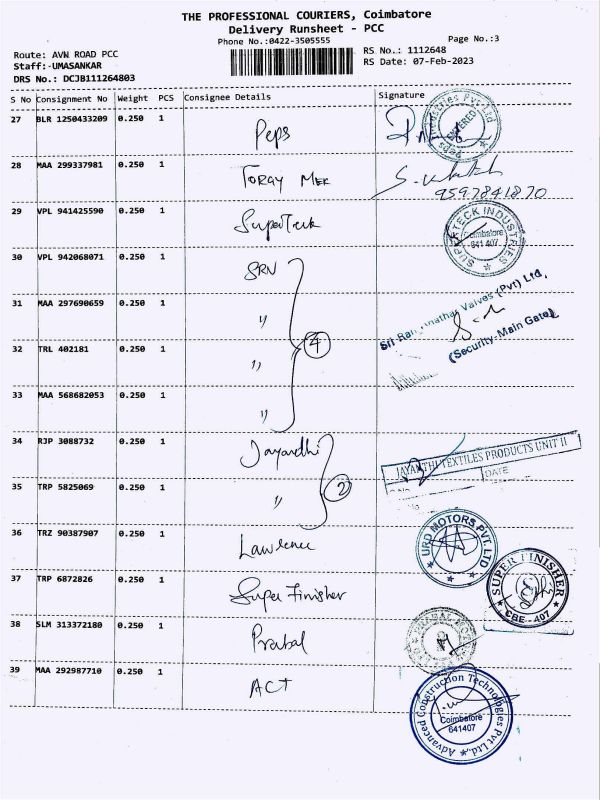 THE PROFESSIONAL COURIERS, Coimbatore
Delivery Runsheet - PCC
Phone No.:0422-3505555
Page No.:3
Route: AVN ROAD PCC
RS No.: 1112648
Staff:-UMASANKAR
RS Date: 07-Feb-2023
DRS No.: DCJB111264803
S No Consignment No Weight PCS Consignee Details Signature
27 BLR 1250433209 0.250 1 Peps
ENTERED
28 MAA 299337981 0.250 1 Toray Mek
9597841870
29 VPL 941425590 0.250 1 SuperTeck
SUPERTECK INDUSTRIES
Coimbatore
641 407
30 VPL 942068071 0.250 1 SRN
31 MAA 297690659 0.250 1 "
Valves (Pvt) Ltd,
(Security-Main Gate)
32 TRL 402181 0.250 1 " 4
33 MAA 568682053 0.250 1 "
34 RJP 3088732 0.250 1 Jayandhi
JAYANTHI TEXTILES PRODUCTS UNIT II
DATE
35 TRP 5825069 0.250 1 " 2
36 TRZ 90387907 0.250 1 Lawrence
URD MOTORS PVT. LTD
37 TRP 6872826 0.250 1 Super Finisher
SUPER FINISHER
CBE - 407
38 SLM 313372180 0.250 1 Prabal
39 MAA 292987710 0.250 1 ACT
Advanced Construction Technologies Pvt Ltd.,
Coimbatore
641407